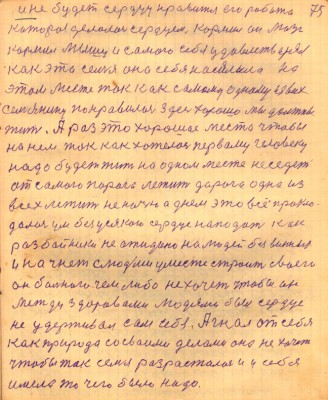 75
и не будет сердцу нравится его работа
которая делалась сердцем, кормил он мозг
кормил мышцу и самого себя удовлетворял
как эта семья она себя населила на
этом месте так как самому одному из них
понравилось здесь хорошо мы должны
жить. А раз это хорошее место чтобы
на нем так как хотелось первому человеку
надо будет жит на одном месте не сидеть
от самого порога лежит дорога одна из
всех лежит не ночью а днем это всё
ум без всякого сердце нападат как
разбойники не ожидано на людей
и начнет с людми умести строит своего
он балного чем либо не хочет чтобы он
между здоровами людьми был сердце
не удержывал сам себя. А гнал от себя
как природа со своими делами она не хочет
чтобы так семя разрасталось и у себя
имела то чего было надо.